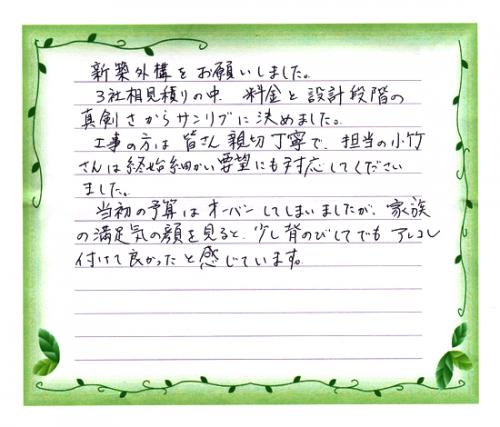 新築外構をお願いしました。
3社相見積りの中、料金と設計段階の
真剣さからサンリブに決めました。
工事の方は皆さん親切丁寧で、担当の小竹
さんは終始細かい要望にも対応してください
ました。
当初の予算はオーバーしてしまいましたが、家族
の満足気の顔を見ると、少し背のびしてでもアレコレ
付けて良かったと感じています。